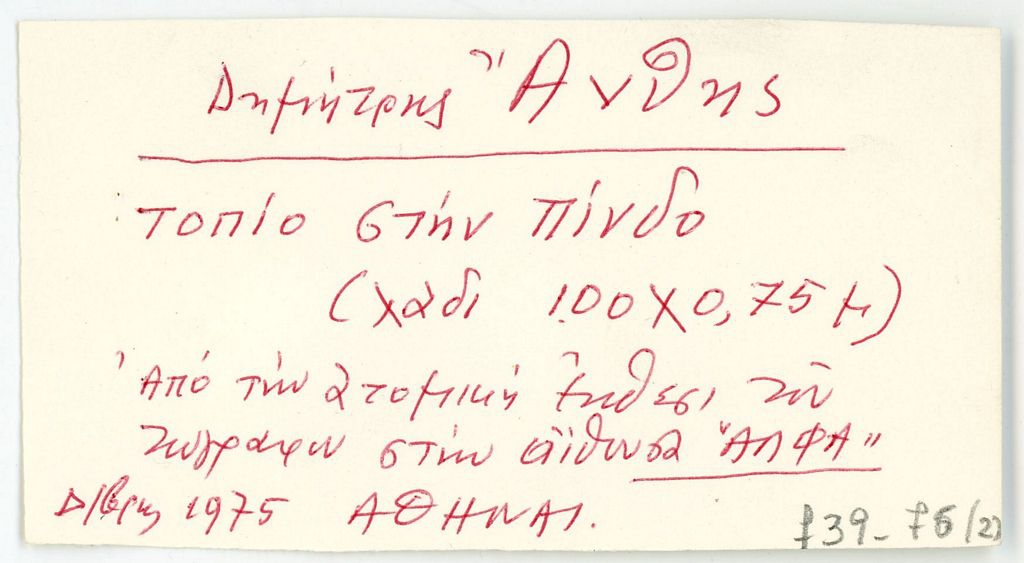 Δημήτρης Ἄνθης
τοπίο στήν Πίνδο
(χάδι 1.00 χ 0,75 μ)
Ἀπό τήν ἀτομική ἔκθεσι τοῦ
ζωγράφου στήν αἴθουσα "ΑΛΦΑ"
Δ/βρης 1975 ΑΘΗΝΑΙ.
f39-f6/2